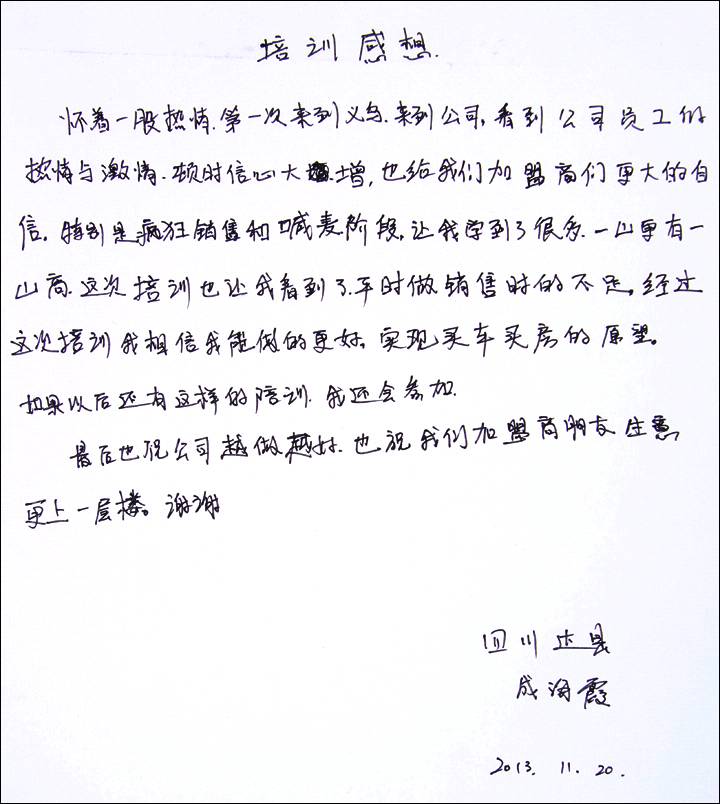 培训感想.
怀着一股热情.第一次来到义乌.来到公司,看到公司员工的
热情与激情.顿时信心大增,也给我们加盟商们更大的自
信。特别是疯狂销售和喊麦阶段,让我学到了很多.一山更有一
山高.这次培训也让我看到了平时做销售时的不足。经过
这次培训我相信我能做的更好。实现买车买房的愿望。
如果以后还有这样的陪训.我还会参加.
最后也祝公司越做越好.也祝我们加盟商朋友生意
更上一层楼。谢谢
四川达县
成海霞
2013. 11. 20.